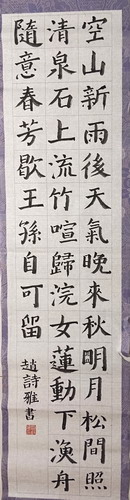 空山新雨後天氣晚來秋明月松間照
清泉石上流竹喧歸浣女蓮動下漁舟
隨意春芳歇王孫自可留
趙詩雅書